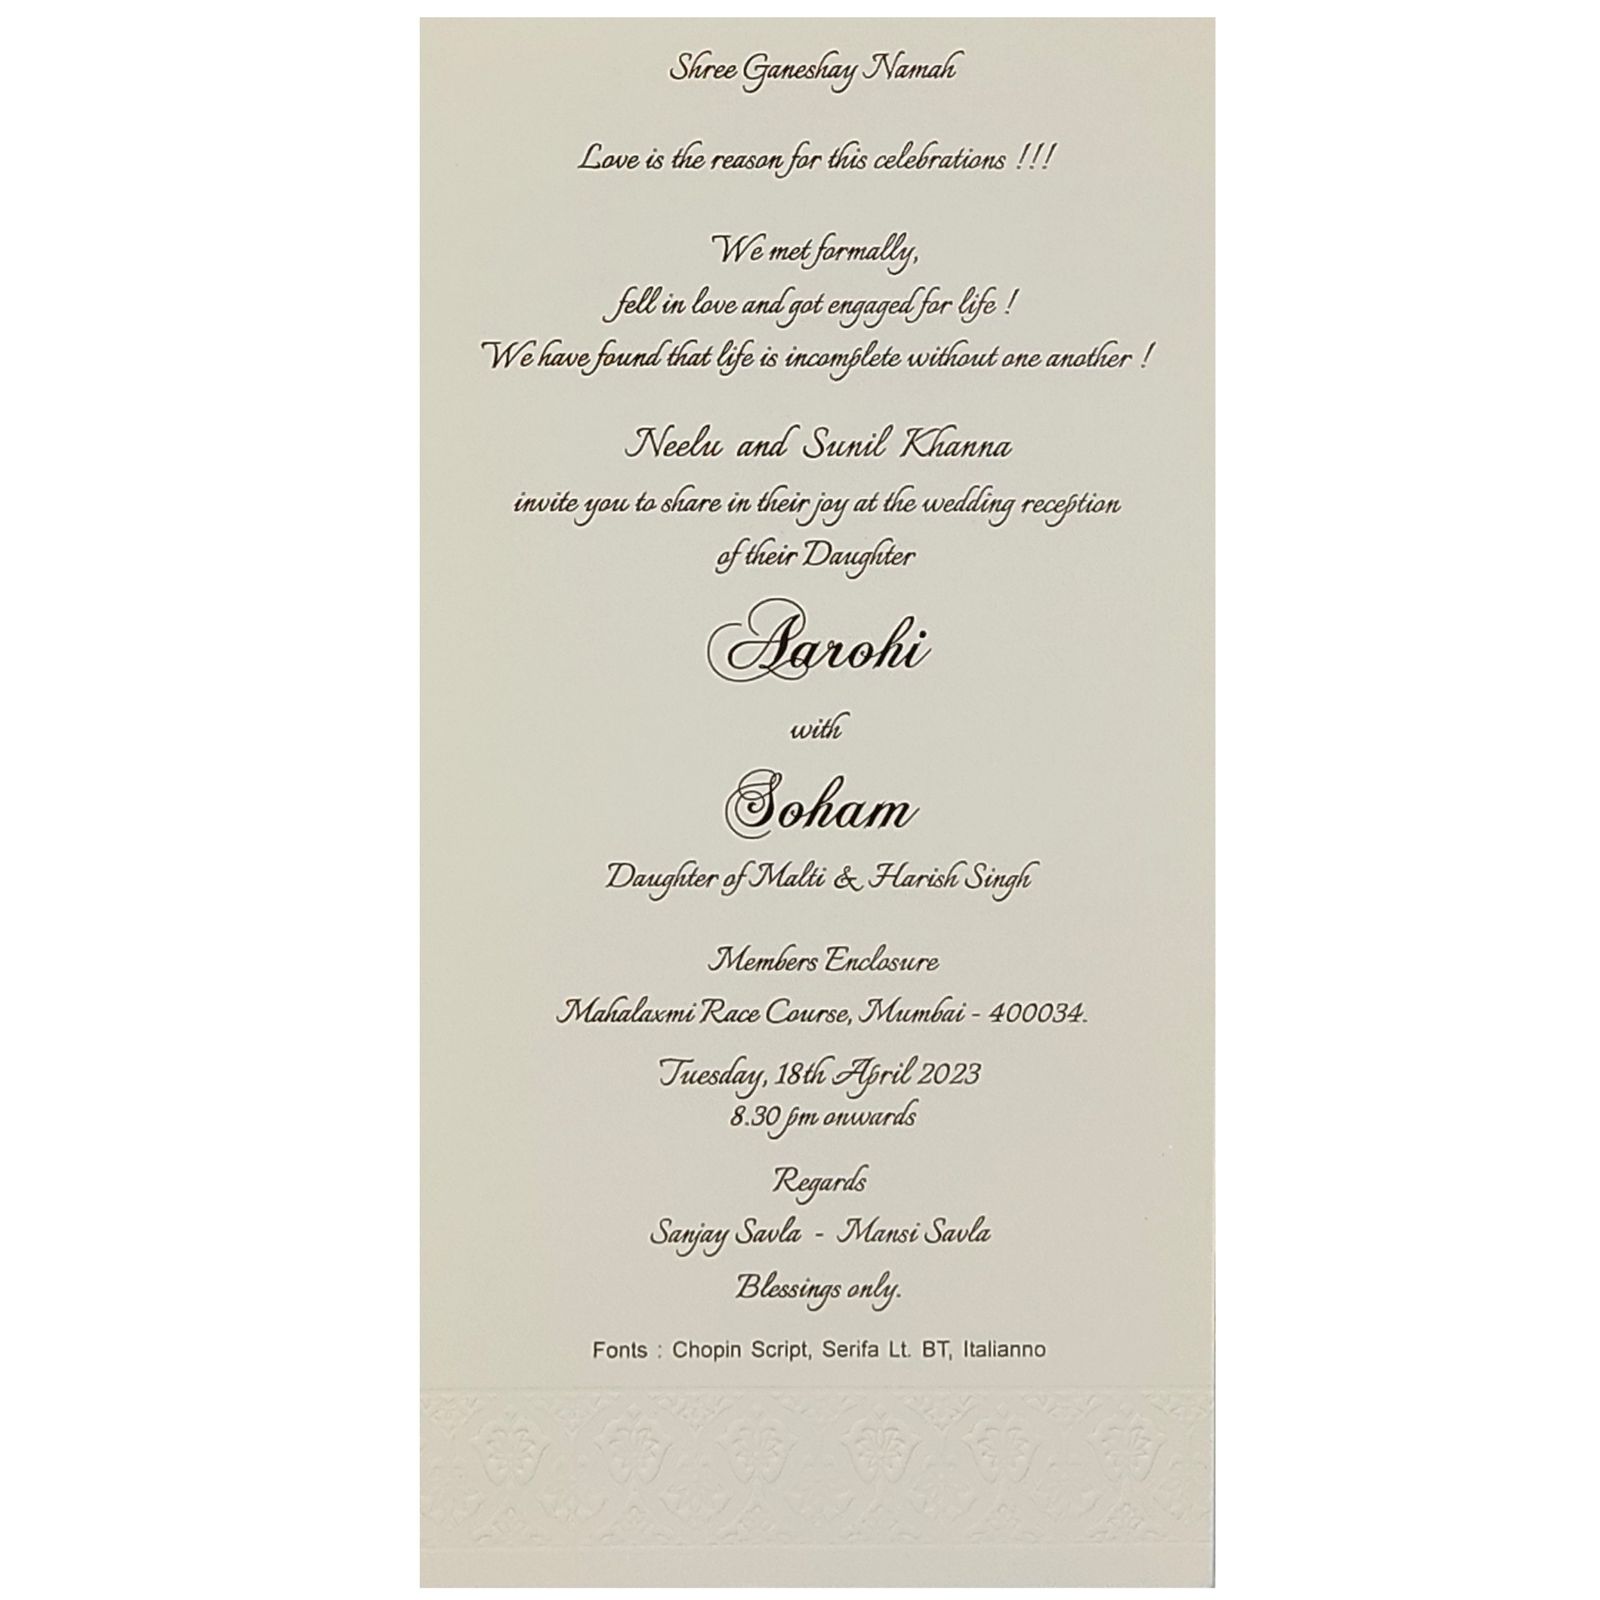 Shree Ganeshay Namah
Love is the reason for this celebrations !!!
We met formally,
fell in love and got engaged for life !
We have found that life is incomplete without one another !
Neelu and Sunil Khanna
invite you to share in their joy at the wedding reception
of their Daughter
Aarohi
with
Soham
Daughter of Malti & Harish Singh
Members Enclosure
Mahalaxmi Race Course, Mumbai - 400034.
Tuesday, 18th April 2023
8.30 pm onwards
Regards
Sanjay Savla - Mansi Savla
Blessings only.
Fonts : Chopin Script, Serifa Lt. BT, Italianno